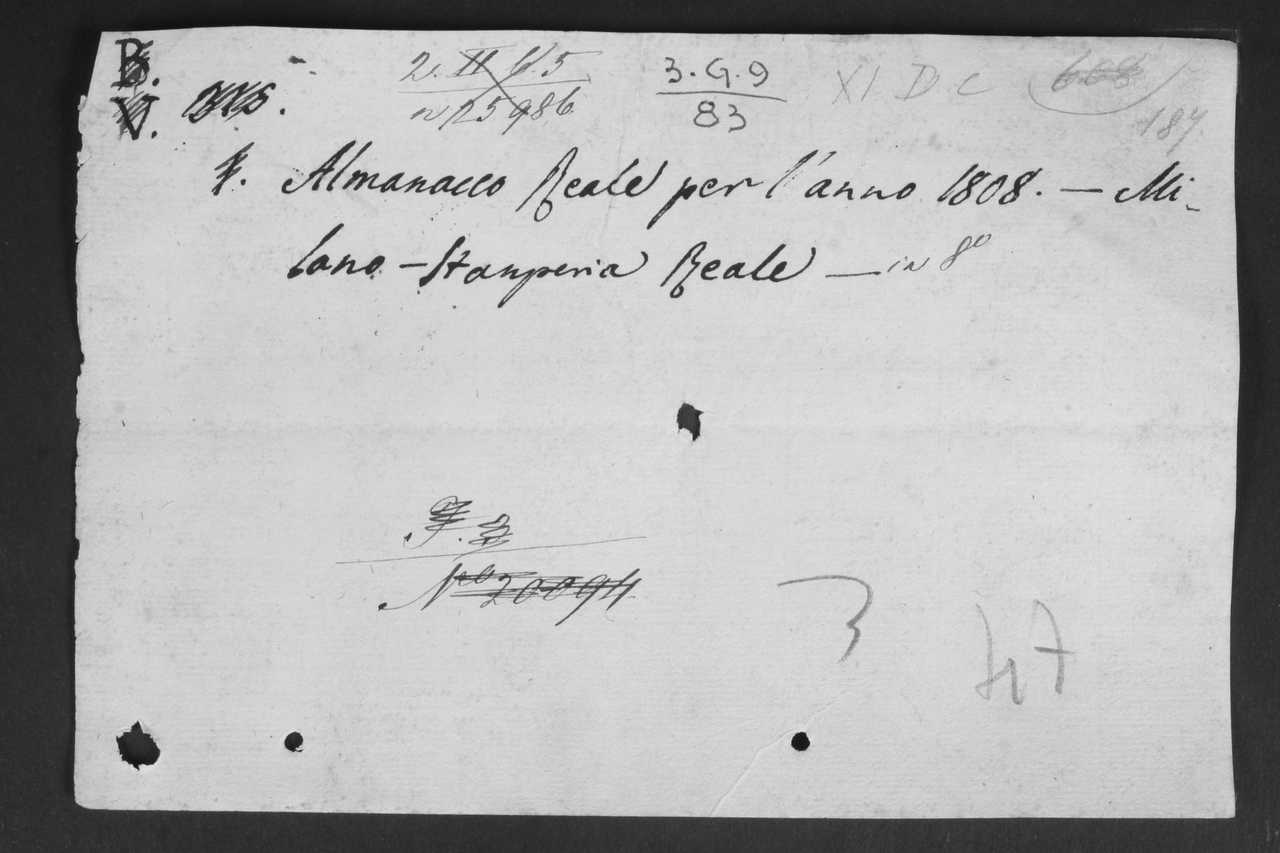 B.
V.
2. II V. 5
n 25986
3.G.9
83
XI D C
608
187
Almanacco Reale per l'anno 1808. — Mi-
lano – Stamperia Reale — in 8°
N.ro 20094
3
47